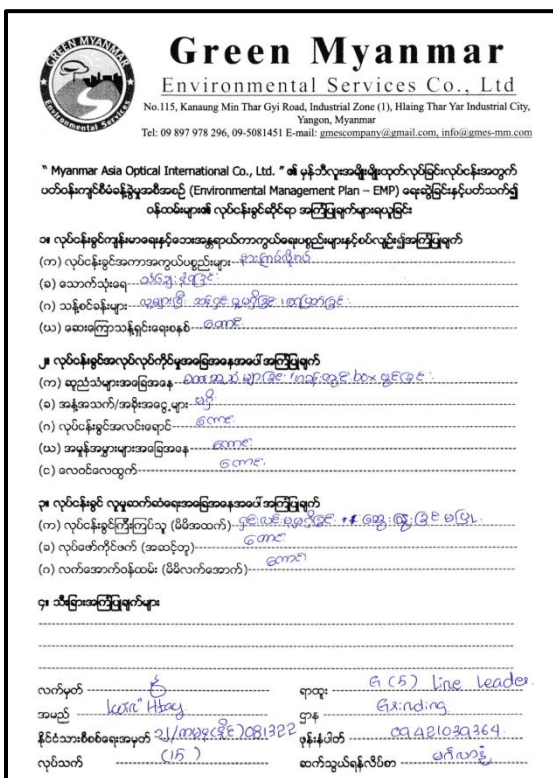 GREEN MYANMAR
Environmental Services
Green Myanmar
Environmental Services Co., Ltd
No.115, Kanaung Min Thar Gyi Road, Industrial Zone (1), Hlaing Thar Yar Industrial City,
Yangon, Myanmar
Tel: 09 897 978 296, 09-5081451 E-mail: gmescompany@gmail.com, info@gmes-mm.com
" Myanmar Asia Optical International Co., Ltd. " ၏ မှန်ဘီလူးအမျိုးမျိုးထုတ်လုပ်ခြင်းလုပ်ငန်းအတွက်
ပတ်ဝန်းကျင်စီမံခန့်ခွဲမှုအစီအစဉ် (Environmental Management Plan – EMP) ရေးဆွဲခြင်းနှင့်ပတ်သက်၍
ဝန်ထမ်းများ၏ လုပ်ငန်းခွင်ဆိုင်ရာ အကြံပြုချက်များရယူခြင်း
၁။ လုပ်ငန်းခွင်ကျန်းမာရေးနှင့်ဘေးအန္တရာယ်ကာကွယ်ရေးပစ္စည်းများနှင့်စပ်လျဉ်း၍အကြံပြုချက်
(က) လုပ်ငန်းခွင်အကာအကွယ်ပစ္စည်းများ နားကြပ်လိုဟပ်
(ခ) သောက်သုံးရေ
(ဂ) သန့်စင်ခန်းများ
(ဃ) ဆေးကြောသန့်ရှင်းရေးစနစ် ကောင်း
၂။ လုပ်ငန်းခွင်အလုပ်လုပ်ကိုင်မှုအခြေအနေအပေါ် အကြံပြုချက်
(က) ဆူညံသံများအခြေအနေ box
(ခ) အနံ့အသက်/အခိုးအငွေ့များ မရှိ
(ဂ) လုပ်ငန်းခွင်အလင်းရောင် ကောင်း
(ဃ) အမှုန်အမွှားများအခြေအနေ ကောင်း
(င) လေဝင်လေထွက် ကောင်း
၃။ လုပ်ငန်းခွင် လူမှုဆက်ဆံရေးအခြေအနေအပေါ် အကြံပြုချက်
(က) လုပ်ငန်းခွင်ကြီးကြပ်သူ (မိမိအထက်)
(ခ) လုပ်ဖော်ကိုင်ဖက် (အဆင့်တူ) ကောင်း
(ဂ) လက်အောက်ဝန်ထမ်း (မိမိလက်အောက်) ကောင်း
၄။ သီးခြားအကြံပြုချက်များ
လက်မှတ် ရာထူး G (5) Line Leader
အမည် Htay ဌာန Grinding
နိုင်ငံသားစိစစ်ရေးအမှတ် 081322 ဖုန်းနံပါတ် 09421039364
လုပ်သက် (15) ဆက်သွယ်ရန်လိပ်စာ